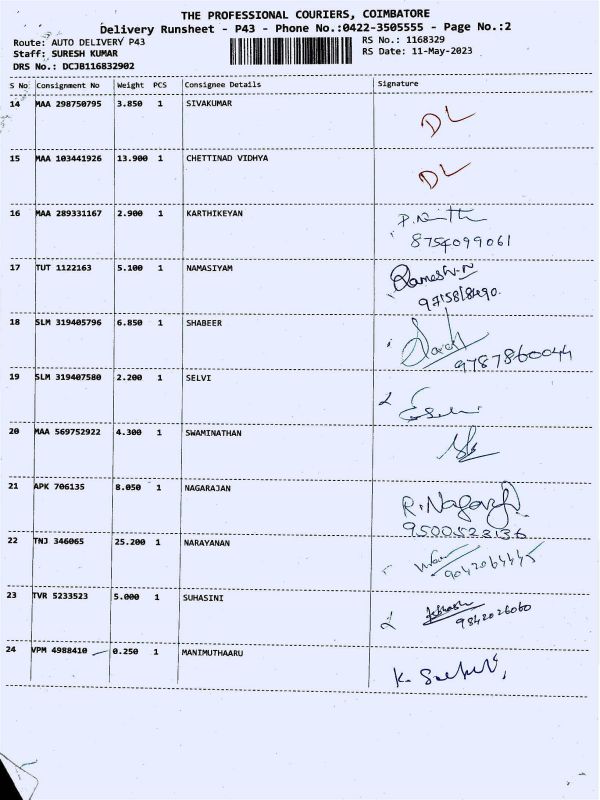 THE PROFESSIONAL COURIERS, COIMBATORE
Delivery Runsheet - P43 - Phone No.:0422-3505555 - Page No.:2
Route: AUTO DELIVERY P43 RS No.: 1168329
Staff: SURESH KUMAR RS Date: 11-May-2023
DRS No.: DCJB116832902
S No Consignment No Weight PCS Consignee Details Signature
14 MAA 298750795 3.850 1 SIVAKUMAR
DL
15 MAA 103441926 13.900 1 CHETTINAD VIDHYA
DL
16 MAA 289331167 2.900 1 KARTHIKEYAN
8754099061
17 TUT 1122163 5.100 1 NAMASIYAM
Ramesh.N
18 SLM 319405796 6.850 1 SHABEER
9787860044
19 SLM 319407580 2.200 1 SELVI
20 MAA 569752922 4.300 1 SWAMINATHAN
21 APK 706135 8.050 1 NAGARAJAN
R. Nagaraj
9500523136
22 TNJ 346065 25.200 1 NARAYANAN
9042064445
23 TVR 5233523 5.000 1 SUHASINI
9842026060
24 VPM 4988410 0.250 1 MANIMUTHAARU